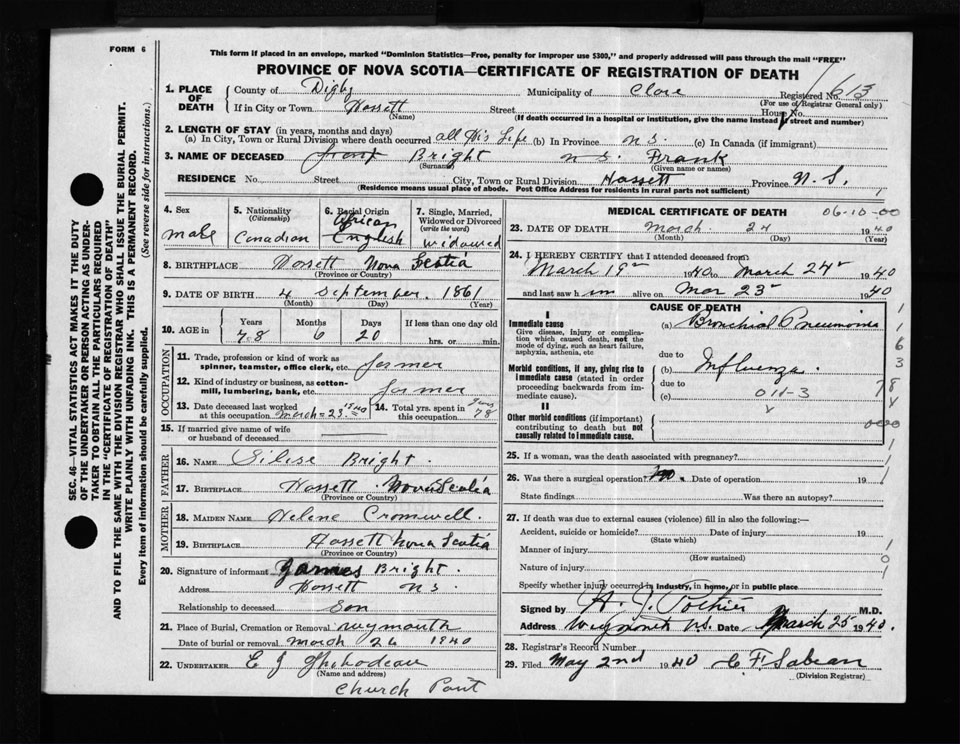 FORM 6
This form if placed in an envelope, marked "Dominion Statistics—Free, penalty for improper use $300," and properly addressed will pass through the mail "FREE"
PROVINCE OF NOVA SCOTIA—CERTIFICATE OF REGISTRATION OF DEATH
SEC. 46—VITAL STATISTICS ACT MAKES IT THE DUTY
OF THE UNDERTAKER OR PERSON ACTING AS UNDER-
TAKER TO OBTAIN ALL THE PARTICULARS REQUIRED
IN THE "CERTIFICATE OF REGISTRATION OF DEATH"
AND TO FILE THE SAME WITH THE DIVISION REGISTRAR WHO SHALL ISSUE THE BURIAL PERMIT.
WRITE PLAINLY WITH UNFADING INK. THIS IS A PERMANENT RECORD.
Every item of information should be carefully supplied. (See reverse side for instructions.)
1. PLACE OF DEATH County of Digby Municipality of Clare Registered No. 613
(For use of Registrar General only)
If in City or Town Hassett Street House No.
(Name) (If death occurred in a hospital or institution, give the name instead of street and number)
2. LENGTH OF STAY (in years, months and days)
(a) In City, Town or Rural Division where death occurred all His Life (b) In Province N S. (c) In Canada (if immigrant)
3. NAME OF DECEASED Bright N S. Frank
(Surname) (Given name or names)
RESIDENCE No. Street City, Town or Rural Division Hassett Province N. S.
(Residence means usual place of abode. Post Office Address for residents in rural parts not sufficient)
4. Sex male
5. Nationality (Citizenship) Canadian
6. Racial Origin African English
7. Single, Married, Widowed or Divorced (write the word) Widowed
8. BIRTHPLACE Hossett Nova Scotia
(Province or Country)
9. DATE OF BIRTH 4 September 1861
(Month) (Day) (Year)
10. AGE in Years 78 Months 6 Days 20 If less than one day old hrs. or min.
OCCUPATION
11. Trade, profession or kind of work as spinner, teamster, office clerk, etc. farmer
12. Kind of industry or business, as cotton-mill, lumbering, bank, etc. farmer
13. Date deceased last worked at this occupation March = 23 1940
14. Total yrs. spent in this occupation 78
15. If married give name of wife or husband of deceased
FATHER
16. NAME Bright.
17. BIRTHPLACE Hassett Nova Scotia
(Province or Country)
MOTHER
18. MAIDEN NAME Helene Cromwell.
19. BIRTHPLACE Hassett Nova Scotia
(Province or Country)
20. Signature of informant James Bright.
Address Hossett N S.
Relationship to deceased Son
21. Place of Burial, Cremation or Removal Weymouth
Date of burial or removal March 26 1940
22. UNDERTAKER E J
(Name and address)
Church Point
MEDICAL CERTIFICATE OF DEATH 06-10-00
23. DATE OF DEATH March 24 1940
(Month) (Day) (Year)
24. I HEREBY CERTIFY that I attended deceased from
March 19 1940 to March 24 1940
and last saw him alive on Mar 23 1940
CAUSE OF DEATH
I
Immediate cause
Give disease, injury or complication which caused death, not the mode of dying, such as heart failure, asphyxia, asthenia, etc
(a) Bronchial Pneumonia
due to
Morbid conditions, if any, giving rise to immediate cause (stated in order proceeding backwards from immediate cause)
(b) Influenza.
due to
(c) 011-3
II
Other morbid conditions (if important) contributing to death but not causally related to immediate cause.
25. If a woman, was the death associated with pregnancy?
26. Was there a surgical operation? No. Date of operation 19
State findings Was there an autopsy?
27. If death was due to external causes (violence) fill in also the following:—
Accident, suicide or homicide? Date of injury 19
(State which)
Manner of injury
(How sustained)
Nature of injury
Specify whether injury occurred in industry, in home, or in public place
Signed by H. J. Pothier M.D.
Address Weymouth N.S. Date March 25 1940.
28. Registrar's Record Number
29. Filed May 2nd 1940 C F Sabean
(Division Registrar)